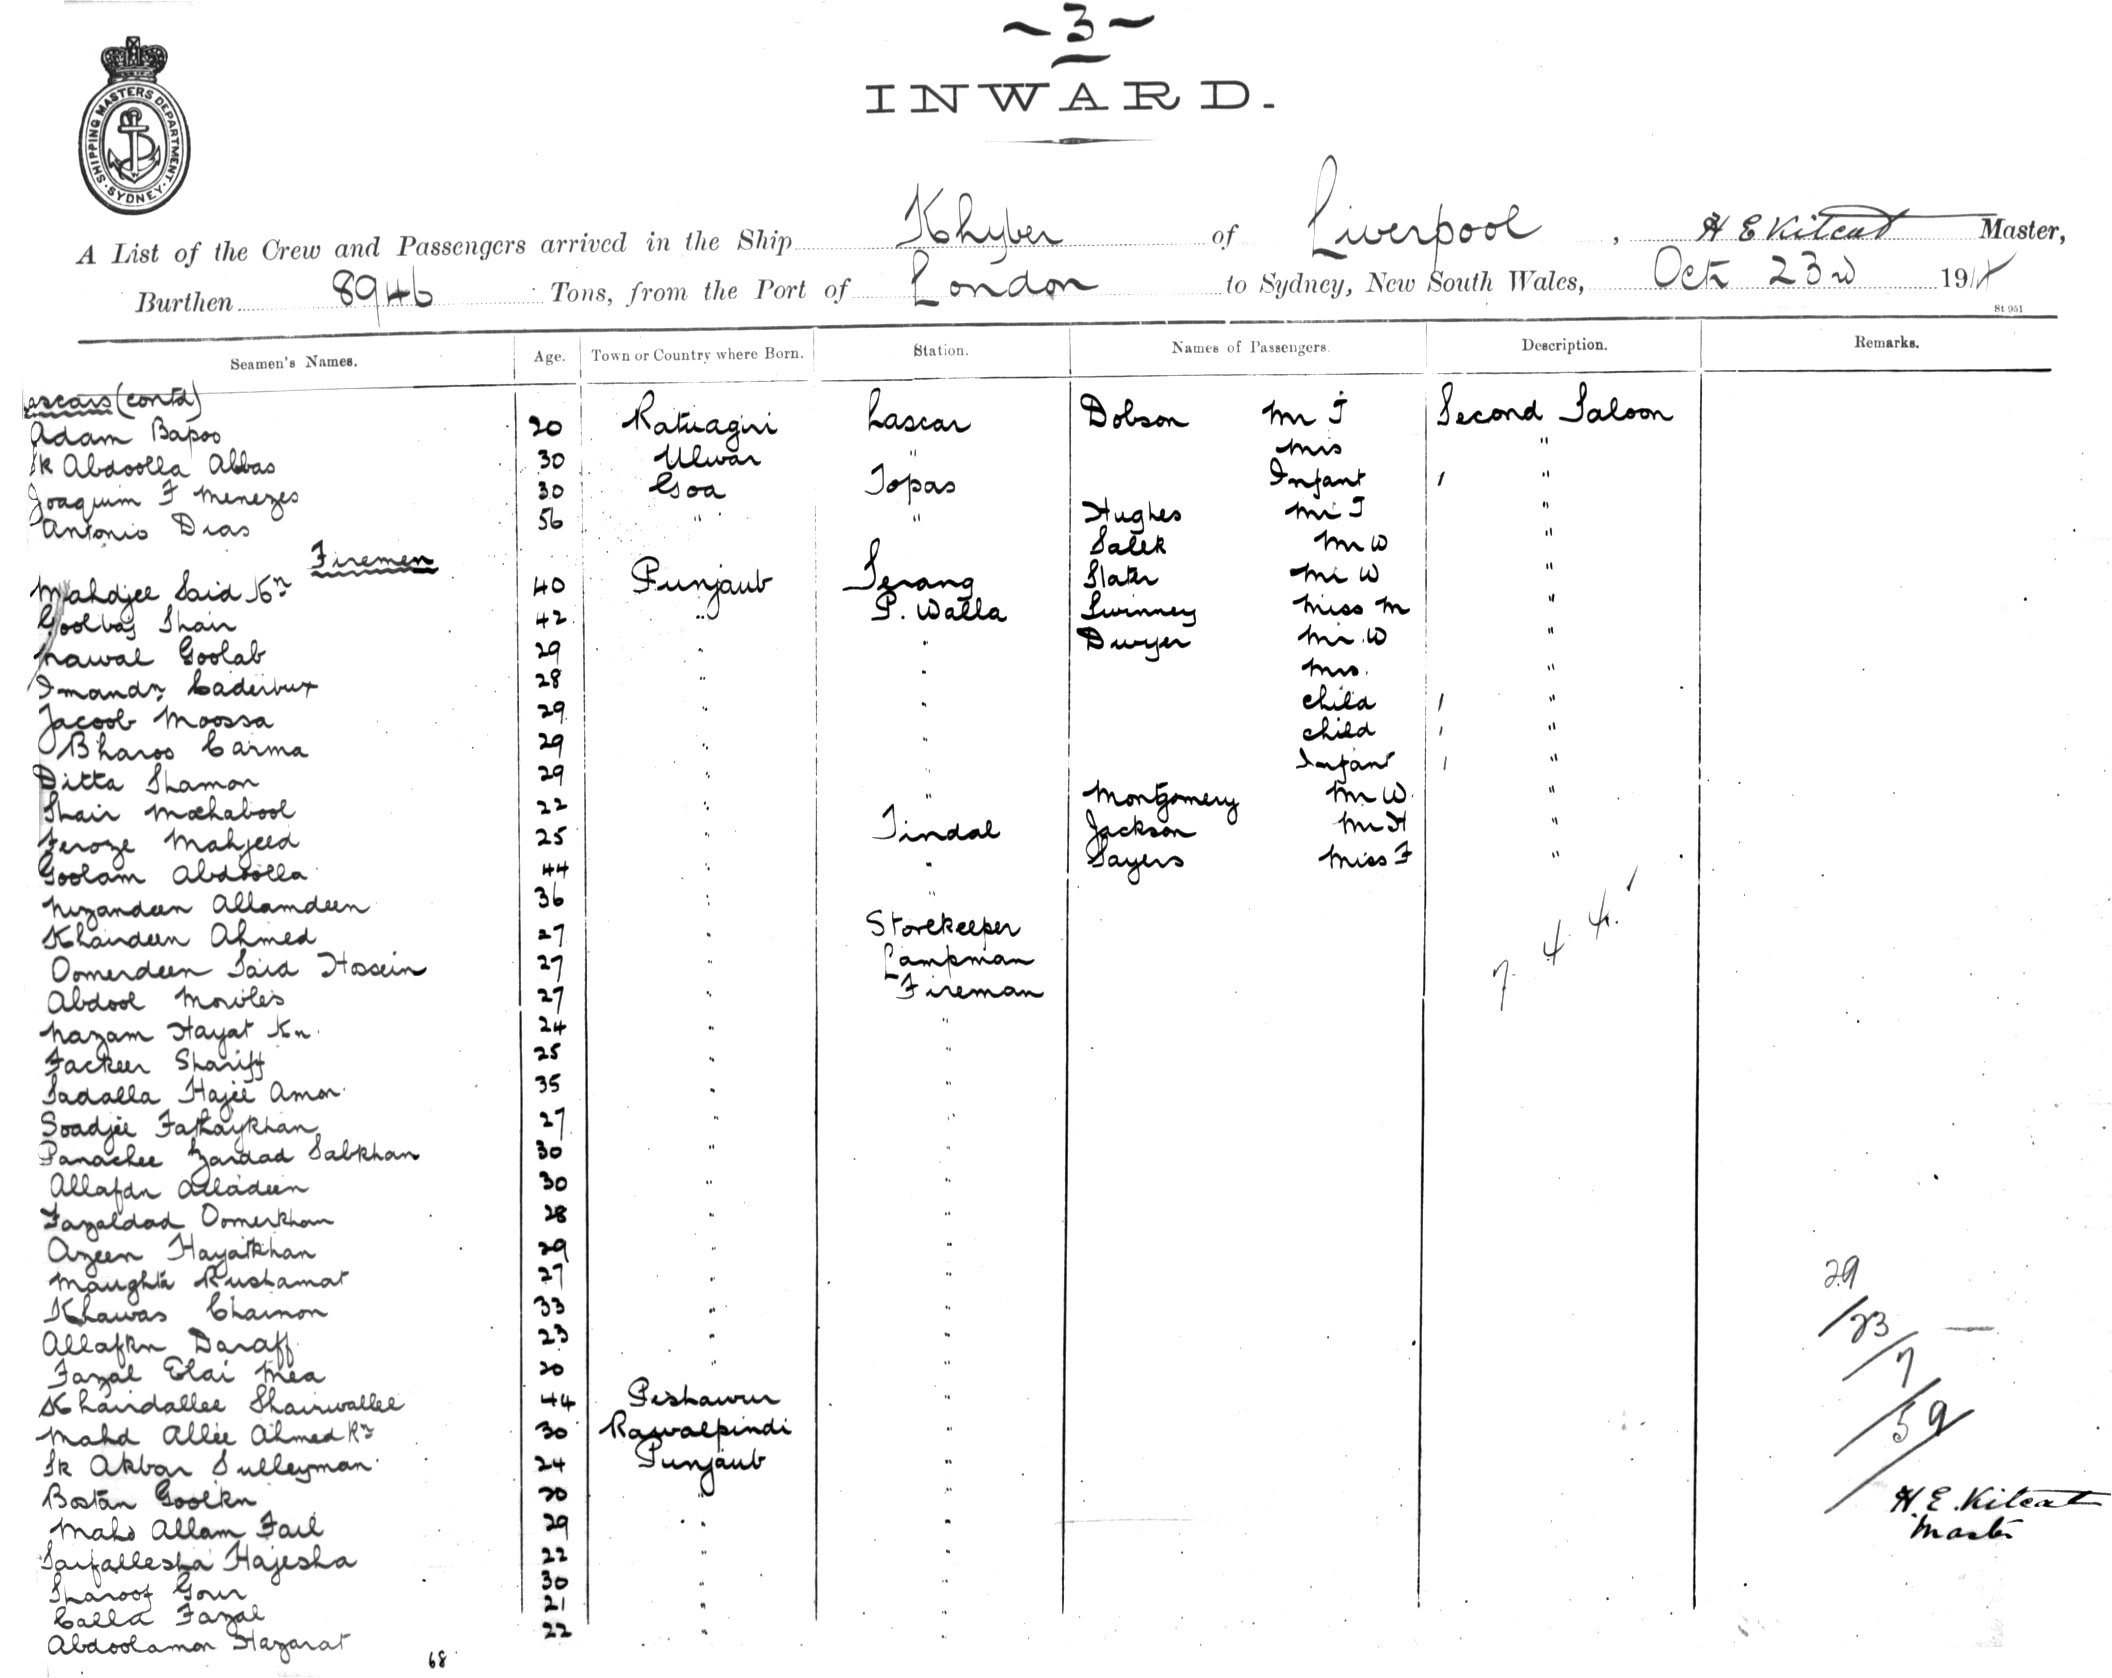 ~ 3 ~
INWARD.
SHIPPING MASTERS DEPARTMENT
SYDNEY
A List of the Crew and Passengers arrived in the Ship Khyber of Liverpool, H E Kitcat Master,
Burthen 8946 Tons, from the Port of London to Sydney, New South Wales, Oct 23rd 191
St 951
Seamen's Names. Age. Town or Country where Born. Station. Names of Passengers. Description. Remarks.
ascars (contd)
Adam Bapoo 20 Ratnagiri Lascar Dobson Mr J Second Saloon
Sk Abdoolla Abbas 30 Ulwar " Mrs "
Joaquim F Menezes 30 Goa Topas Infant 1 "
Antonio Dias 56 " " Hughes Mr T "
Salek Mr W "
Firemen
Mahdjee Said Kn 40 Punjaub Serang Slater Mr W "
Goolbaj Shair 42 " P. Walla Swinney Miss M "
Nawal Goolab 29 " " Dwyer Mr W "
Imandn Caderbux 28 " " Mrs. "
Jacoob Moossa 29 " " child 1 "
Bharoo Carma 29 " " child 1 "
Ditta Shamon 29 " " Infant 1 "
Shair Mochabool 22 " " Montgomery Mr W. "
Feroze Mahjeed 25 " Tindal Jackson Mr H "
Goolam Abdoolla 44 " " Sayers Miss F "
Nizandeen Allamdeen 36 " "
Khandeen Ahmed 27 " Storekeeper
Oomerdeen Said Hossein 27 " Lampman
Abdool 27 " Fireman
7 4 4.
Nazam Hayat Kn. 24 " "
Fackeer Shariff 25 " "
Sadalla Hajee Amon 35 " "
Soadjee Fathaykhan 27 " "
Panachee Zardad Sabkhan 30 " "
Allafdn Alladeen 30 " "
Fazaldad Oomerkhan 28 " "
Azeen Hayatkhan 29 " "
Maughta Rustamat 27 " "
29
Khawas Chamon 33 " "
23
Allafkn Daraff 23 " "
7
Fazal Elai Mea 20 " "
Khandallee Shairwallee 44 Peshawur "
59
Mahd Allie Ahmed Kn 30 Rawalpindi "
Sk Akbar Sulleyman 24 Punjaub "
Bostan Goolkn 20 " "
H E. Kitcat
Master
Mahd Allam Fail 29 " "
Saifallesha Hajesha 22 " "
Sharoof Gour 30 " "
Calla Fazal 21 " "
Abdoolamon Hazarat 22 " "
68